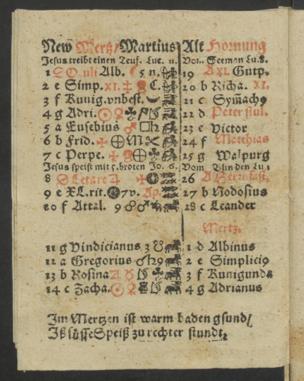 New Mertz/Martius Alt Hornung
Jesus treibt einen Teuf. Luc. 11. Vom Seemen Lu. 8.
1 d Oculi Alb. 5 n. 19 A xl. Gutp.
2 e Simp. XI. 20 b Richa. XI.
3 f Kunig. vnbest. 21 c Symach9
4 g Adri. 22 d Peter stul.
5 a Eusebius 23 e Victor
6 b Frid. 24 f Matthias
7 c Perpe. 25 g Walpurg
Jesus speist mit 5. broten Jo. 6. Vom Blinden Lu.
8 d Letare 26 A
9 e XL. rit. 7 v. 27 b Nodosius
10 f Attal. 9 28 c Leander
Mertz.
11 g Vindicianus 3 1 d Albinus
12 a Gregorius 2 e Simplici9
13 b Rosina 3 f Kunigunda
14 c Zacha. 4 g Adrianus
Im Mertzen ist warm baden gsund/
Iß süsse Speiß zu rechter stundt.